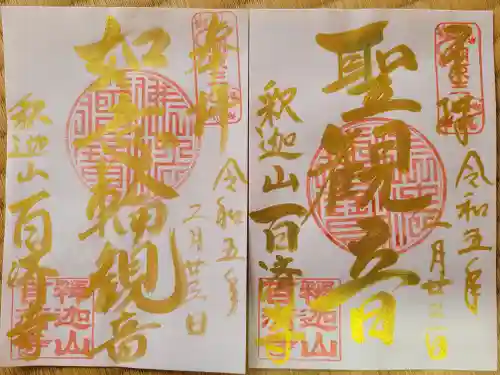 奉拝
令和五年
二月廿三日
如意輪観音
釈迦山 百済寺
釋迦山
百済寺
奉拝
令和五年
二月廿三日
聖観音
釈迦山 百済寺
釋迦山
百済寺